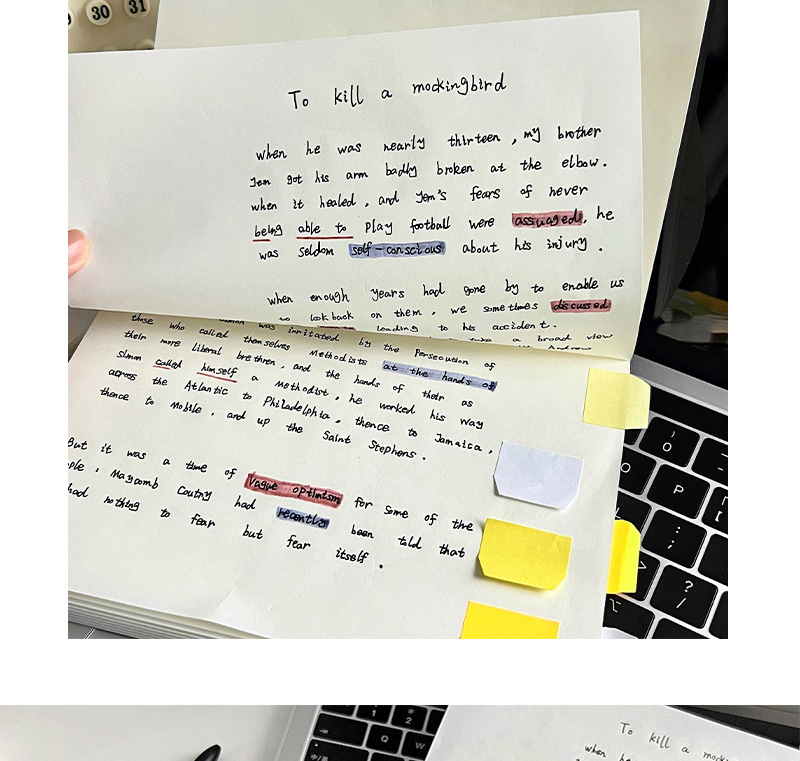 30 31
To kill a mockingbird
when he was nearly thirteen, my brother
Jem got his arm badly broken at the elbow.
when it healed, and Jem's fears of never
being able to play football were assuaged, he
was seldom self-conscious about his injury.
when enough years had gone by to enable us
look back on them, we sometimes discussed
leading to his accident.
take a broad view
Andrew
was irritated by the Persecution of
those who called themselves Methodists at the hands of
their more liberal brethren, and the hands of their as
simon called himself a Methodist, he worked his way
across the Atlantic to Philadelphia, thence to Jamaica,
thence to Mobile, and up the Saint Stephens.
But it was a time of Vague optimism for some of the
ple, Maycomb Coutny had recently been told that
had nothing to fear but fear itself.
O
P
?
/
1 2
Q W
To kill a mock
when he